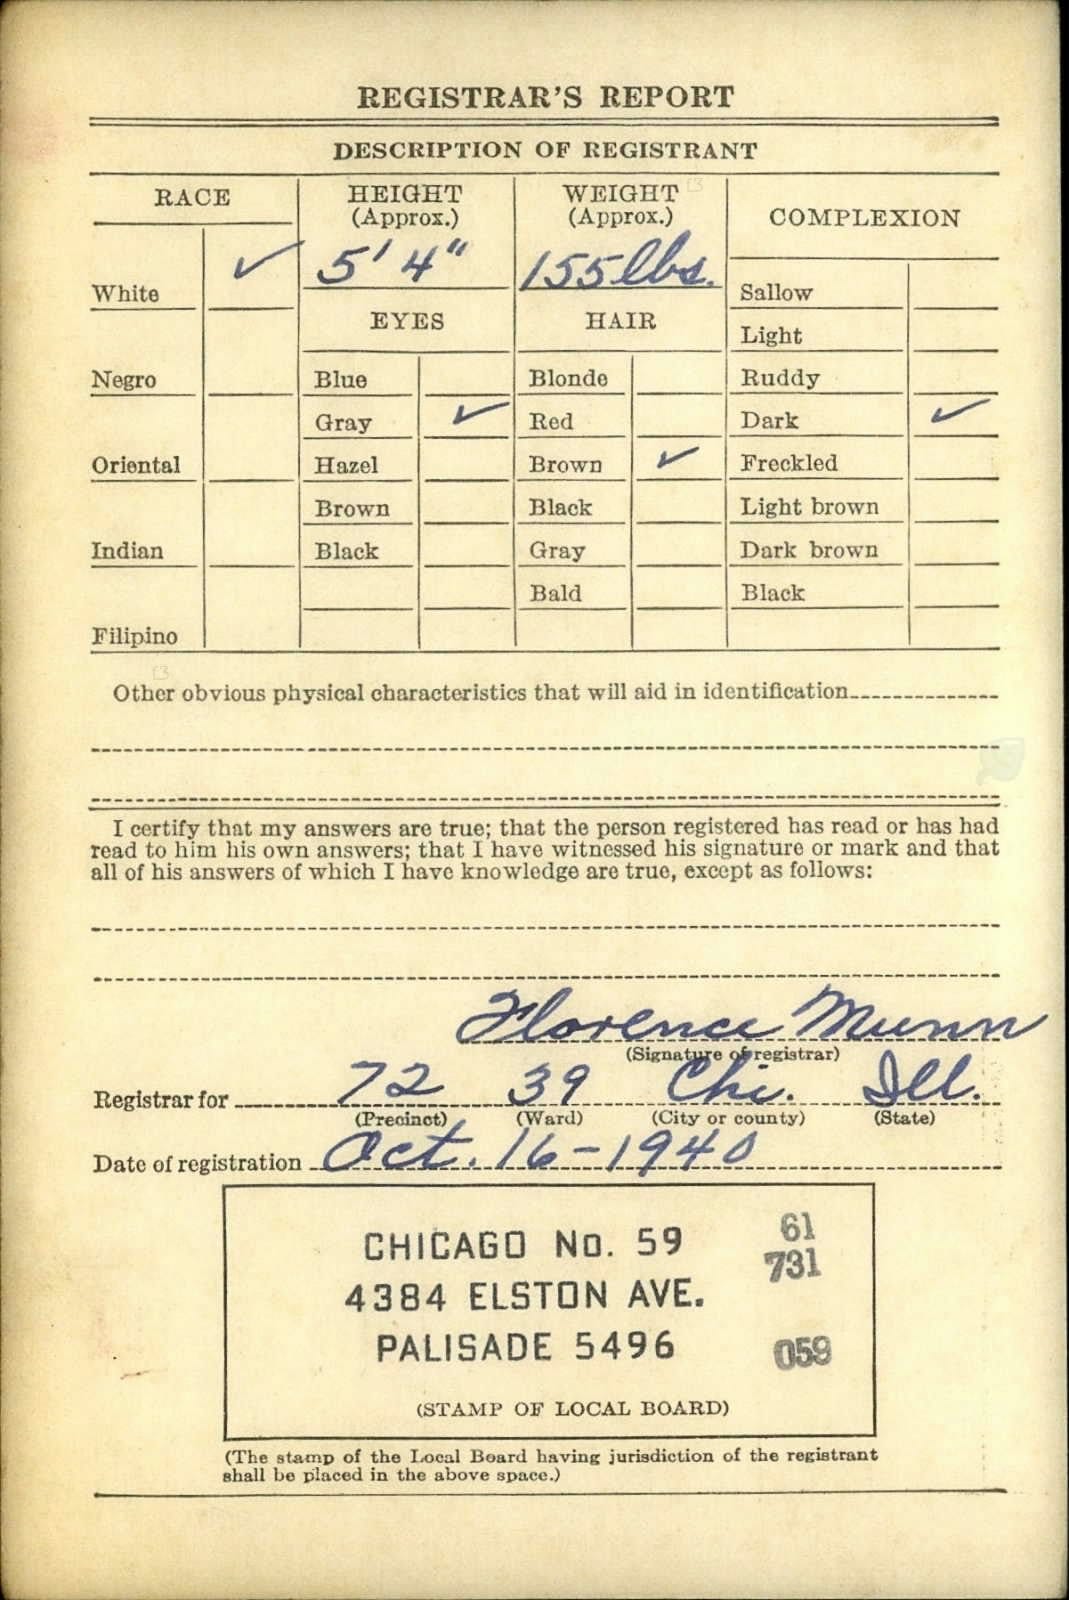 REGISTRAR'S REPORT
DESCRIPTION OF REGISTRANT
RACE
HEIGHT
(Approx.)
WEIGHT
(Approx.)
COMPLEXION
White ✓
5' 4"
155 lbs.
Sallow
EYES
HAIR
Light
Negro
Blue
Blonde
Ruddy
Gray ✓
Red
Dark ✓
Oriental
Hazel
Brown ✓
Freckled
Brown
Black
Light brown
Indian
Black
Gray
Dark brown
Bald
Black
Filipino
Other obvious physical characteristics that will aid in identification
I certify that my answers are true; that the person registered has read or has had
read to him his own answers; that I have witnessed his signature or mark and that
all of his answers of which I have knowledge are true, except as follows:
Florence Munn
(Signature of registrar)
Registrar for 72 39 Chi. Ill.
(Precinct) (Ward) (City or county) (State)
Date of registration Oct. 16-1940
CHICAGO No. 59
61
731
4384 ELSTON AVE.
PALISADE 5496
059
(STAMP OF LOCAL BOARD)
(The stamp of the Local Board having jurisdiction of the registrant
shall be placed in the above space.)